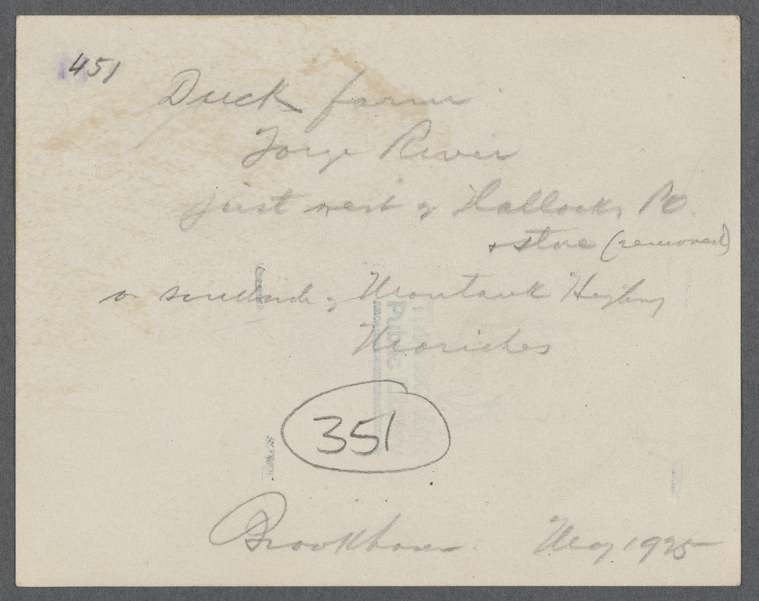 451
Duck farm
Forge River
just west of Hallocks PO.
+ store (removed)
on south side of Montauk Highway
Moriches
351
Brookhaven. May 1925